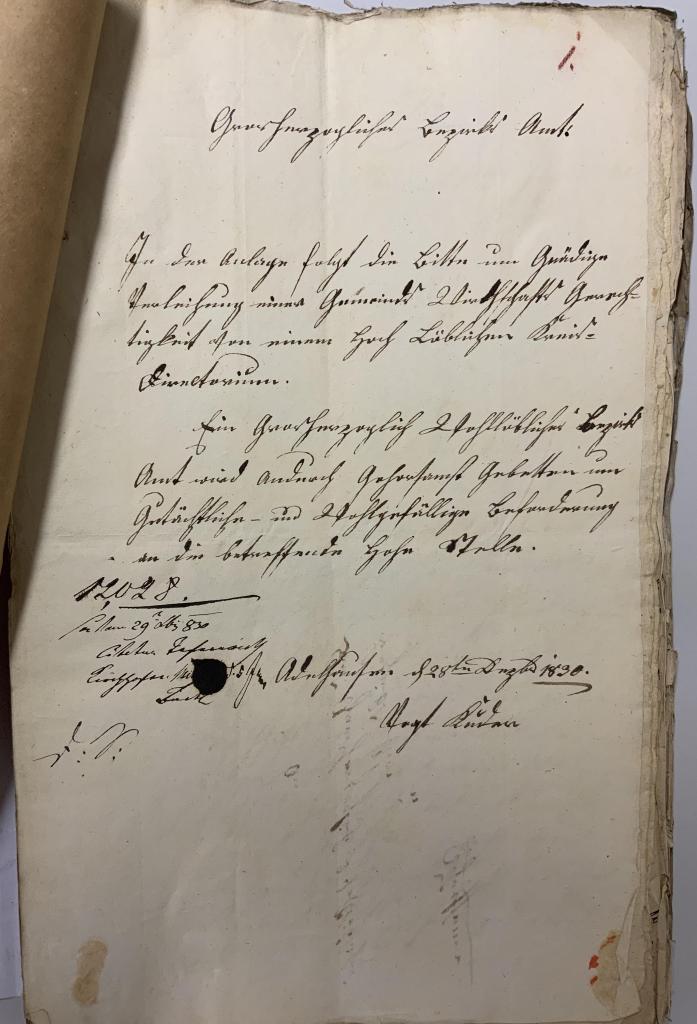 1.
Grosherzogliches Bezirks Amt.
In der Anlage folgt die Bitte um Gnädige
Verleihung einer Gemeinds Wirthschafts Gerech-
tigkeit von einem Hoch Löblichen Kreis-
Directorium.
Ein Grosherzoglich Wohllöbliches Bezirks
Amt wird andurch Gehorsamst Gebetten um
Gutächtliche- und Wohlgefällige Beforderung
an die betreffende Hohe Stelle.
12,028.
29
Adelhausen d 28ten Dezbr 1830.
Vogt Kuder